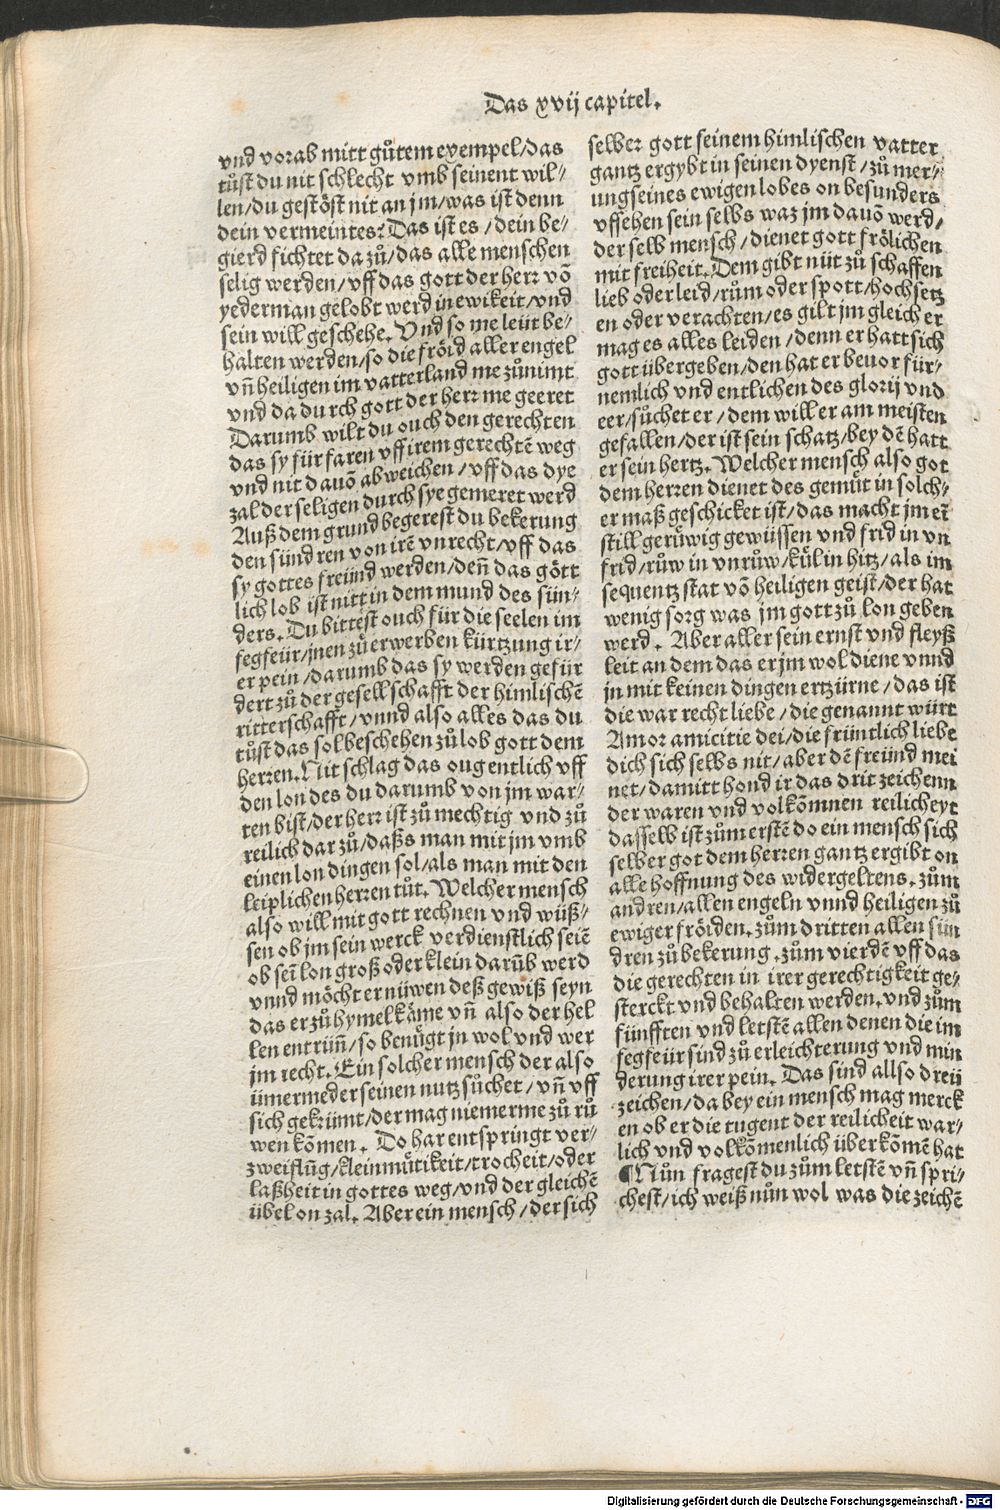 Das xvij capitel.
vnd vorab mitt gůtem exempel/das
tůst du nit schlecht vmb seinent wil-/
len/du gestöst nit an jm/was ist denn
dein vermeintes? Das ist es/dein be-
gierd fichtet da zů/das alle menschen
selig werden/vff das gott der herr võ
yederman gelobt werd in ewikeit/vnd
sein will geschehe. Vnd so me leüt be-/
halten werden/so die fröid aller engel
vñ heiligen im vatterland me zůnimt
vnd da durch gott der herr me geeret
Darumb wilt du ouch den gerechten
das sy fürfaren vff irem gerechtẽ weg
vnd nit dauõ abweichen/vff das dye
zal der seligen durch sye gemeret werd
Auß dem grund begerest du bekerung
den sündren von irẽ vnrecht/vff das
sy gottes freünd werden/deñ das gött
lich lob ist nitt in dem mund des sün-/
ders. Du bittest ouch für die seelen im
fegfeür/jnen zů erwerben kürtzung ir-/
er pein/darumb das sy werden gefür
dert zů der gesellschafft der himlischẽ
ritterschafft/vnnd also alles das du
tůst das sol beschehen zů lob gott dem
herren. Nit schlag das oug entlich vff
den lon des du darumb von jm war-/
ten bist/der herr ist zů mechtig vnd zů
reilich dar zů/daßs man mit jm vmb
einen lon dingen sol/als man mit den
leiplichen herren tůt. Welcher mensch
also will mit gott rechnen vnd wüß-/
sen ob jm sein werck verdienstlich seiẽ
ob seĩ lon groß oder klein darũb werd
vnnd möcht er nüwen deß gewiß seyn
das er zů hymel käme vñ also der hel
len entrüñ/so benügt jn wol vnd wer
jm recht. Ein solcher mensch der also
ümermeder seinen nutz sůchet/vñ vff
sich gekrümt/der mag niemerme zů rů
wen kõmen. Do har entspringt ver-/
zweiflũg/kleinmütikeit/trocheit/oder
laßheit in gottes weg/vnd der gleichẽ
übel on zal. Aber ein mensch/der sich
selber gott seinem himlischen vatter
gantz ergybt in seinen dyenst/zů mer-/
ung seines ewigen lobes on besunders
vffsehen sein selbs waz jm dauõ werd/
der selb mensch/dienet gott frölichen
mit freiheit. Dem gibt nüt zů schaffen
lieb oder leid/rům oder spott/hochsetz
en oder verachten/es gilt jm gleich er
mag es alles leiden/denn er hatt sich
gott übergeben/den hat er beuor für-/
nemlich vnd entlichen des glorij vnd
eer/sůchet er/dem will er am meisten
gefallen/der ist sein schatz/bey dẽ hatt
er sein hertz. Welcher mensch also got
dem herren dienet des gemüt in solch-/
er maß geschicket ist/das macht jm eĩ
still gerüwig gewüssen vnd frid in vn
frid/růw in vnrůw/kül in hitz/als im
sequentz stat võ heiligen geist/der hat
wenig sorg was jm gott zů lon geben
werd. Aber aller sein ernst vnd fleyß
leit an dem das er jm wol diene vnnd
jn mit keinen dingen ertzürne/das ist
die war recht liebe/die genannt würt
Amor amicitie dei/die früntlich liebe
dich sich selbs nit/aber dẽ freünd mei
net/damitt hond ir das drit zeichenn
der waren vnd volkõmnen reilicheyt
dasselb ist zům erstẽ do ein mensch sich
selber got dem herren gantz ergibt on
alle hoffnung des widergeltens. zům
andren/allen engeln vnnd heiligen zů
ewiger fröiden. zům dritten allen sün
dren zů bekerung. zům vierdẽ vff das
die gerechten in irer gerechtigkeit ge-
sterckt vnd behalten werden. vnd zům
fünfften vnd letstẽ allen denen die im
fegfeür sind zů erleichterung vnd min
derung irer pein. Das sind allso dreü
zeichen/da bey ein mensch mag merck
en ob er die tugent der reilicheit war-/
lich vnd volkõmenlich überkõmẽ hat
¶Nůn fragest du zům letstẽ vñ spri-/
chest/ich weiß nůn wol was die zeichẽ
Digitalisierung gefördert durch die Deutsche Forschungsgemeinschaft - DFG